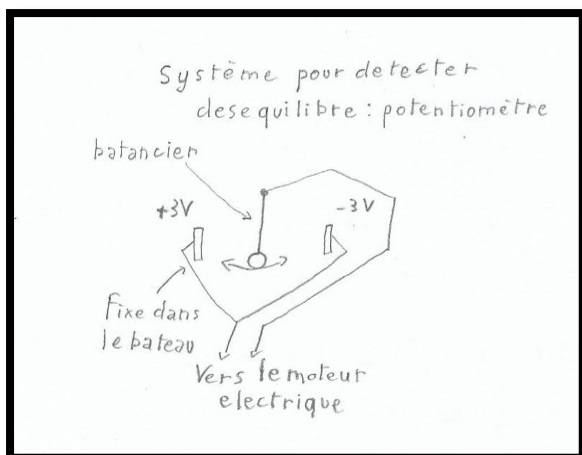 Système pour detecter
desequilibre : potentiomètre
batancier
+3V
-3V
Fixe dans
le bateau
Vers le moteur
electrique